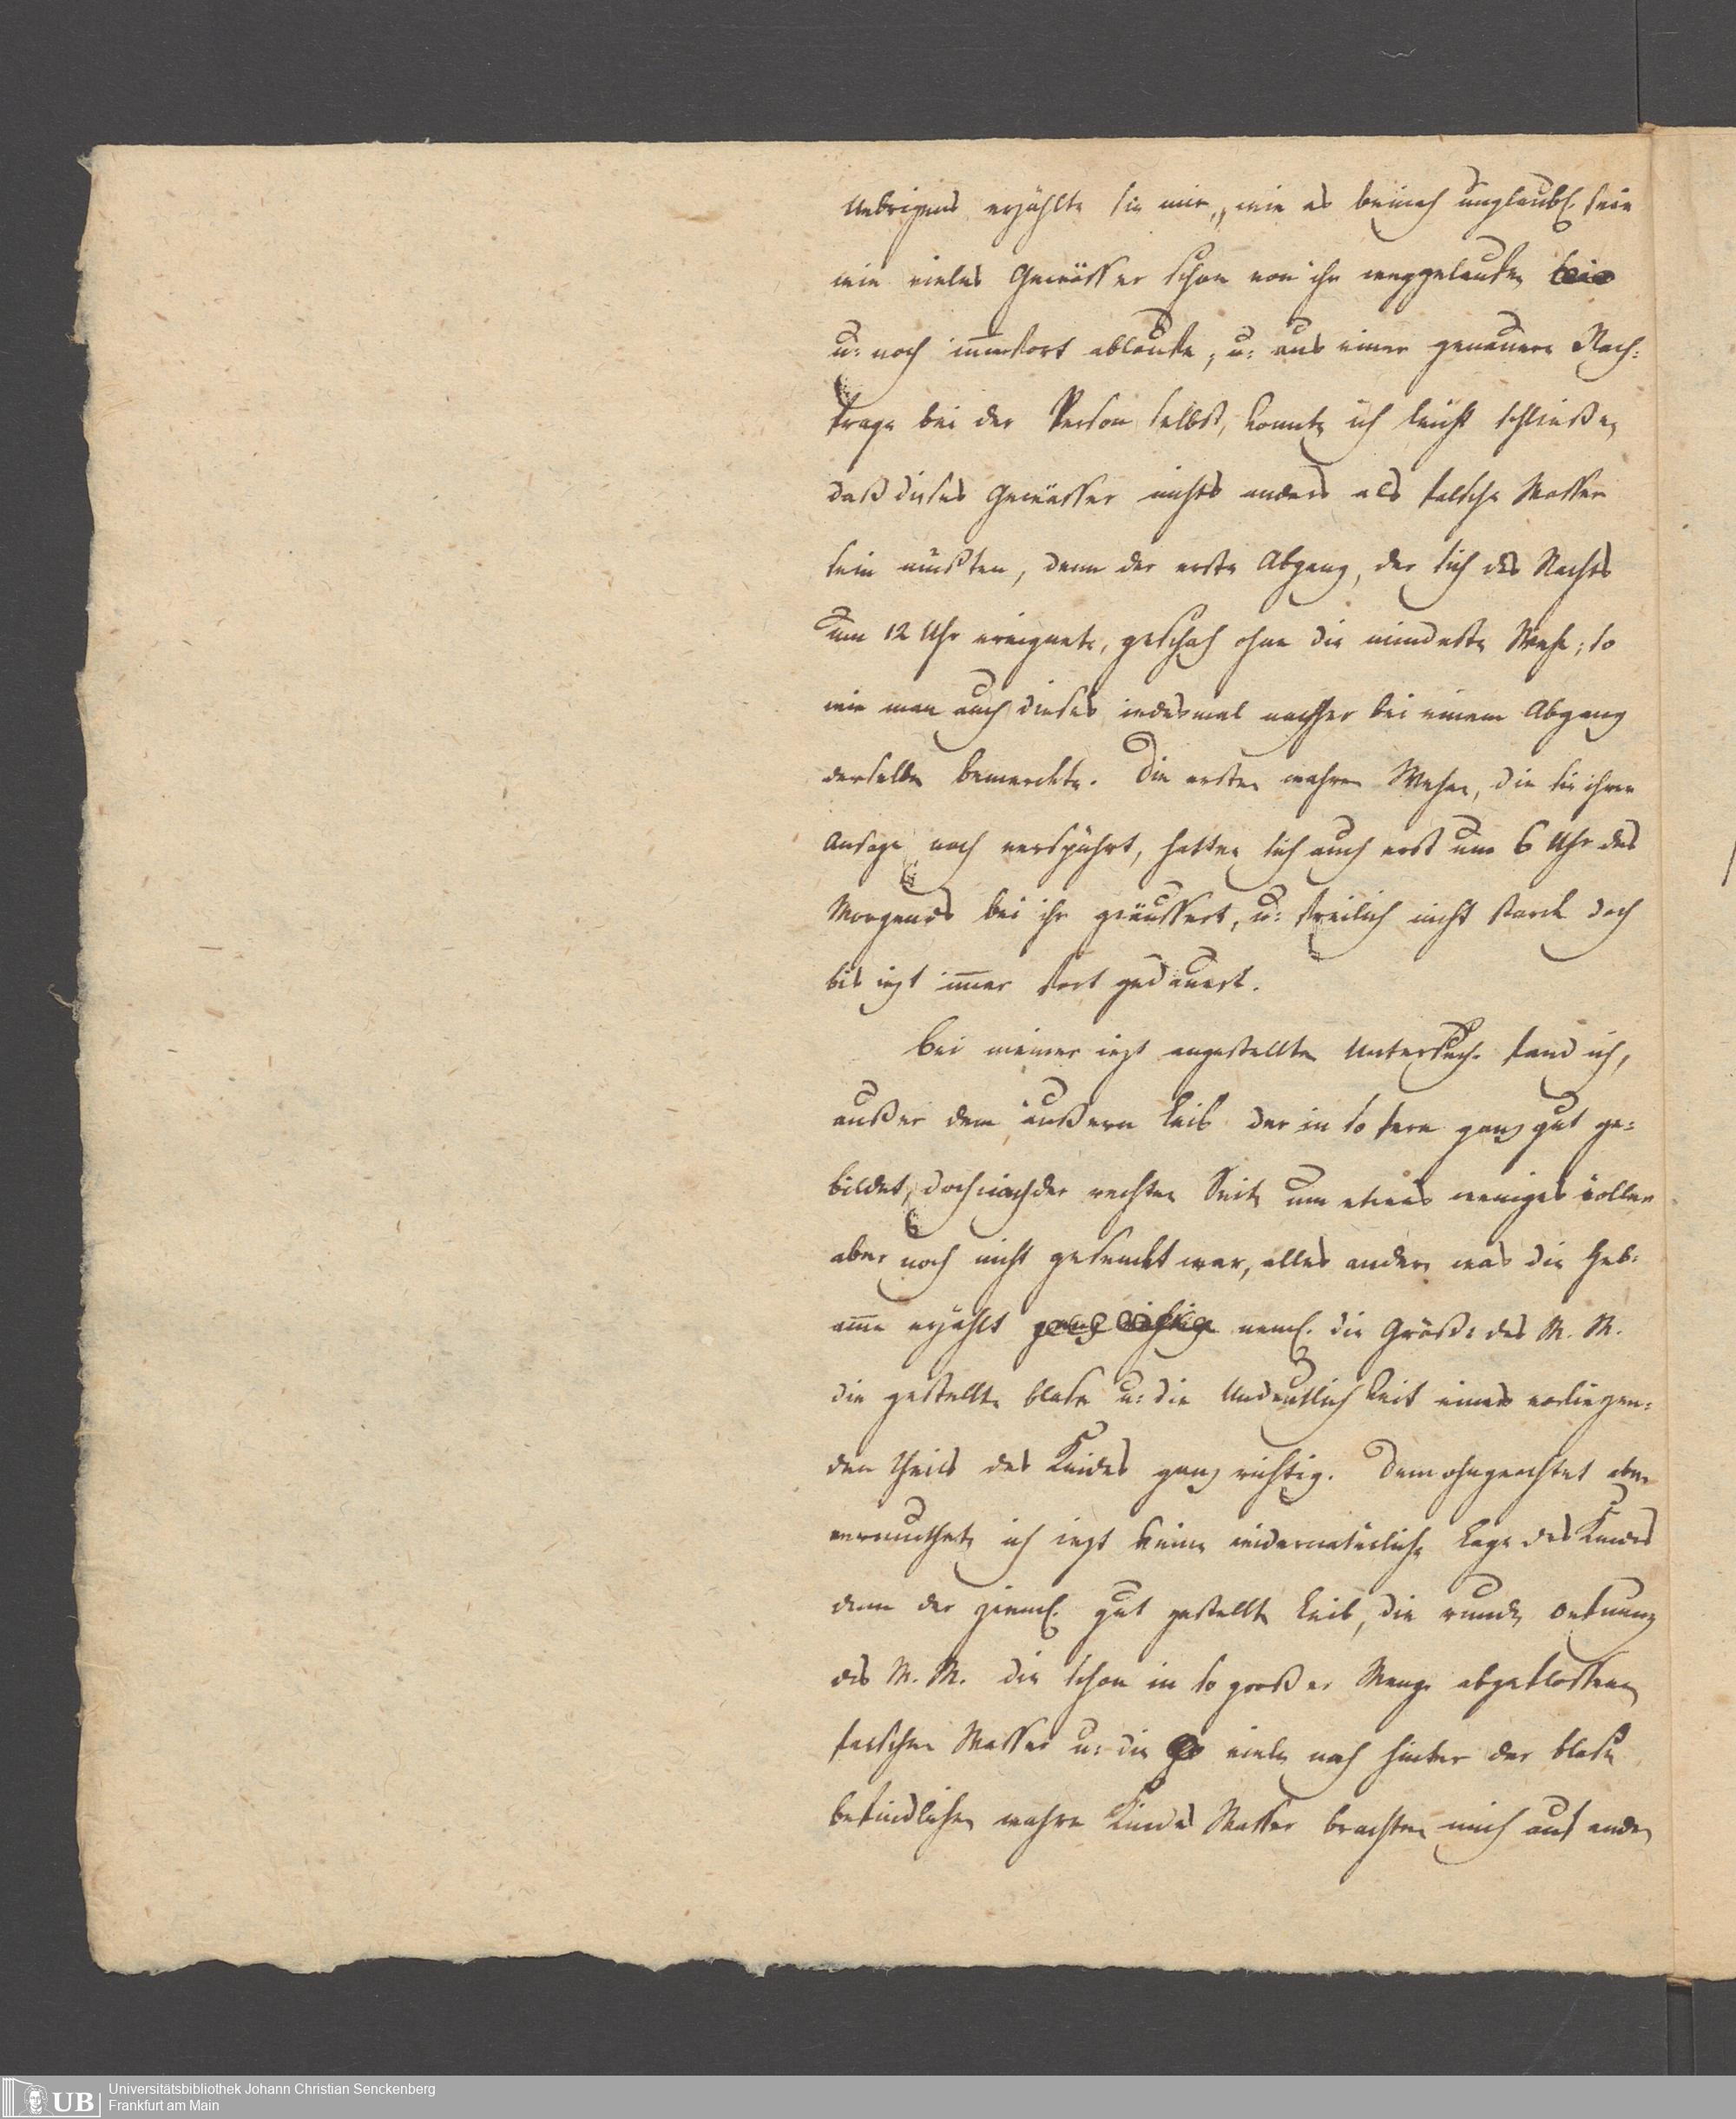 Uebrigens erzählte sie mir, wie es beinah unglaubl. sein
wie vieles Gewässer schon von ihr weggelaufen sei
u: noch immerfort ablaufe, u: aus einer genauern Nach:
frage bei der Person selbst, konnte ich leicht schließen
daß dieses Gewässer nichts anders als falsche Wasser
sein müßten, denn der erste Abgang, der sich des Nachts
um 12 Uhr ereignete, geschah ohne die mindeste Wehe; so
wie man auch dieses iedesmal nachher bei einem Abgang
derselben bemerckte. Die ersten wahren Wehen, die sie ihrer
Aussage nach verspührt, hatten sich auch erst um 6 Uhr des
Morgends bei ihr geäussert, u: freilich nicht starck doch
bis iezt immer fort gedauert.
Bei meiner iezt angestellten Untersuch. fand ich,
außer dem äußern Leib der in so fern ganz gut ge:
bildet, doch nach der rechten Seite um etwas weniges voller
aber noch nicht gesenckt war, alles andere was die Heb:
amme erzählt ganz richtig neml. die Größe des M. M.
die gestellte Blase u: die Undeutlichkeit eines vorliegen:
den Theils des Kindes ganz richtig. Dem ohngeachtet aber
vermuthete ich iezt keine widernatürliche Lage des Kindes
denn der zieml. gut gestellte Leib, die runde Oefnung
des M. M. die schon in so großer Menge abgeflossenen
falschen Wasser u: die viele noch hinter der Blase
befindlichen wahre Kindes Wasser brachten mich auf andere
Universitätsbibliothek Johann Christian Senckenberg
Frankfurt am Main
UB